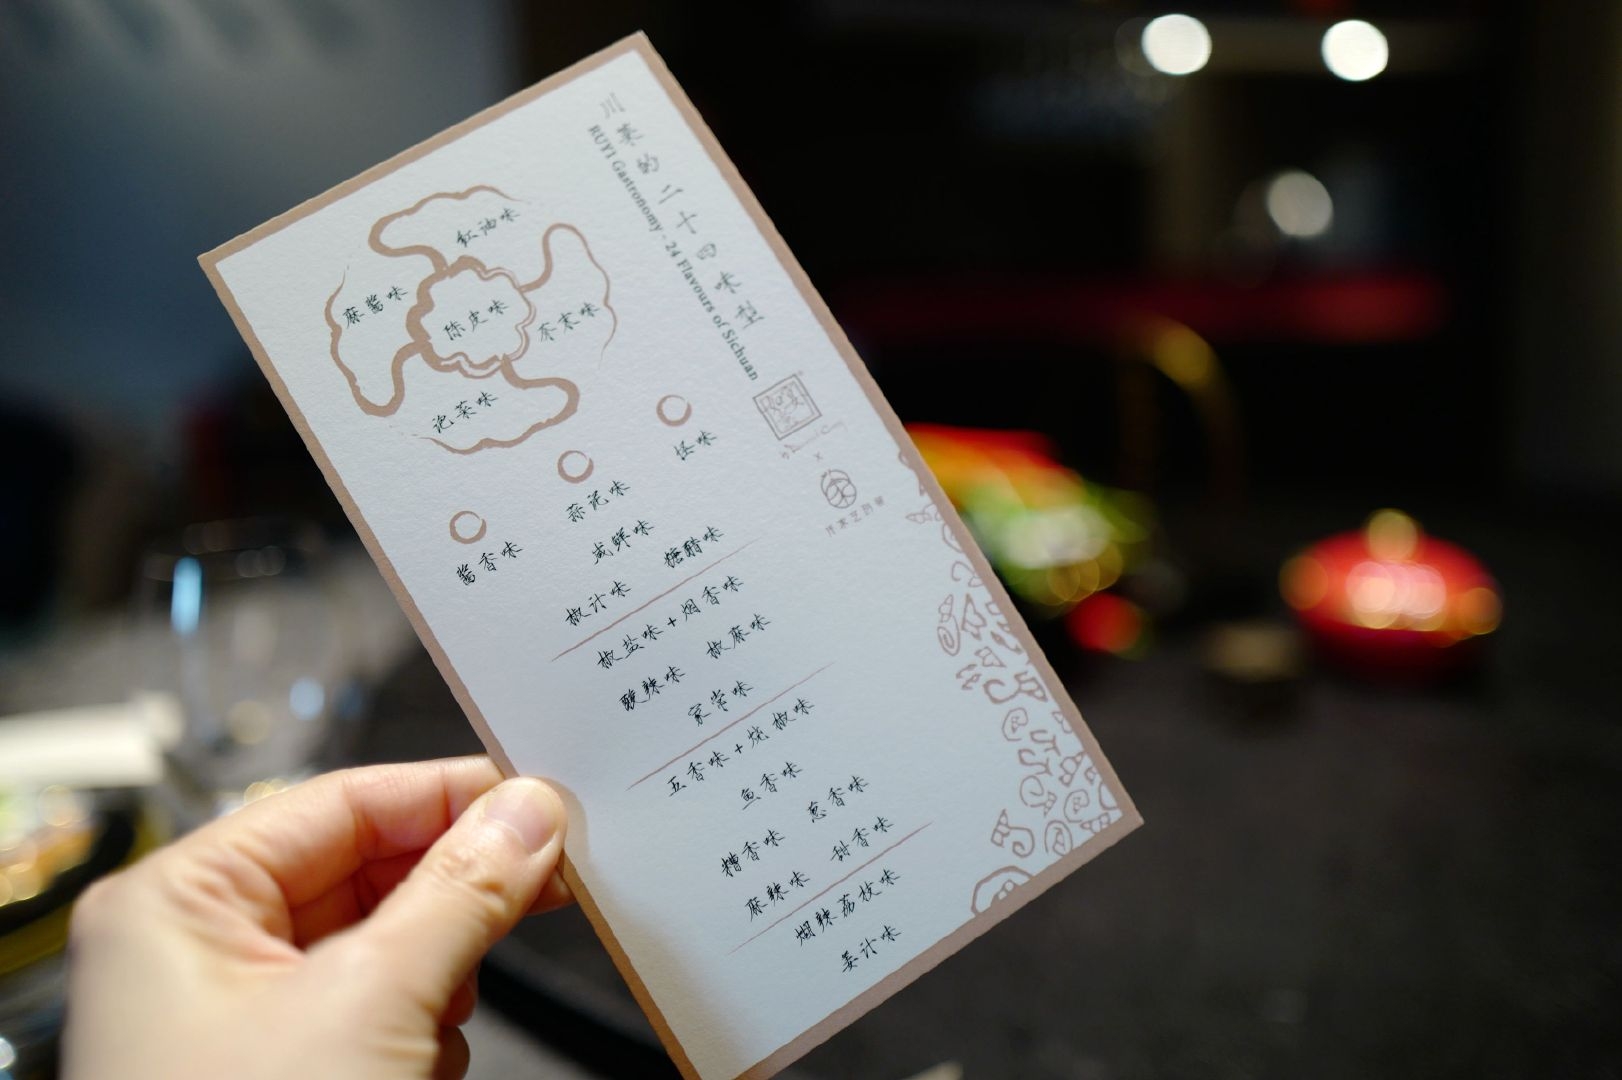 川菜的二十四味型
RUYI Gastronomy - 24 Flavours of Sichuan
红油味
麻酱味
陈皮味
芥末味
泡菜味
怪味
蒜泥味
酱香味
咸鲜味
糖醋味
椒汁味
椒盐味+烟香味
酸辣味
椒麻味
家常味
五香味+烧椒味
鱼香味
葱香味
糟香味
甜香味
麻辣味
烟辣荔枝味
姜汁味
x